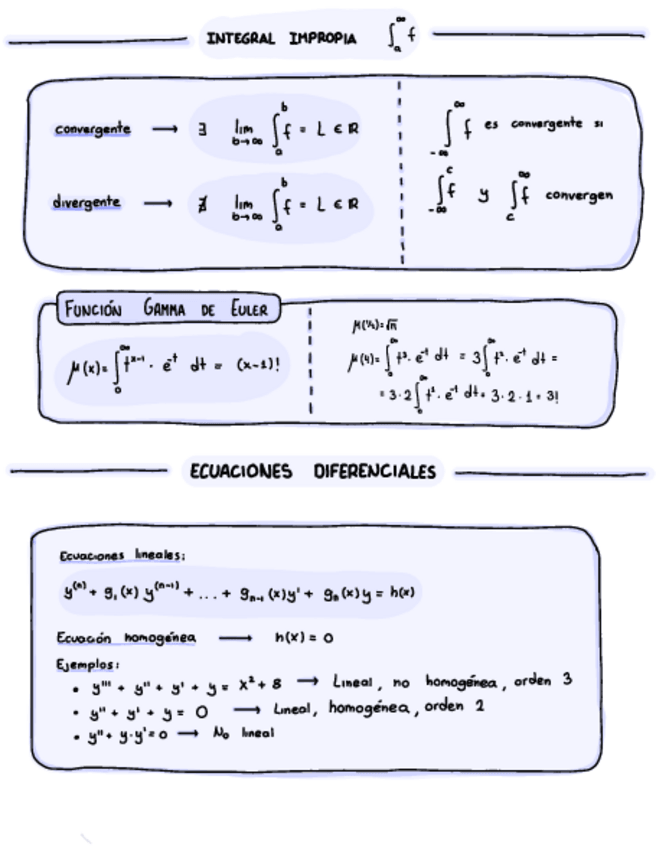 INTEGRAL IMPROPIA ∫ₐ^∞ f
convergente → ∃ lim b→∞ ∫ₐ^b f = L ∈ ℝ
divergente → ∄ lim b→∞ ∫ₐ^b f = L ∈ ℝ
∫₋∞^∞ f es convergente si
∫₋∞^c f y ∫_c^∞ f convergen
FUNCIÓN GAMMA DE EULER
μ(x) = ∫₀^∞ t^(x-1) · e^(-t) dt = (x-1)!
μ(½) = √π
μ(4) = ∫₀^∞ t³ · e^(-t) dt = 3∫₀^∞ t² · e^(-t) dt =
= 3·2∫₀^∞ t¹ · e^(-t) dt = 3·2·1 = 3!
ECUACIONES DIFERENCIALES
Ecuaciones lineales:
y^(n) + g₁(x) y^(n-1) + ... + gₙ₋₁(x)y' + gₙ(x)y = h(x)
Ecuación homogénea → h(x) = 0
Ejemplos:
• y''' + y'' + y' + y = x² + 8 → Lineal, no homogénea, orden 3
• y'' + y' + y = 0 → Lineal, homogénea, orden 2
• y'' + y·y' = 0 → No lineal